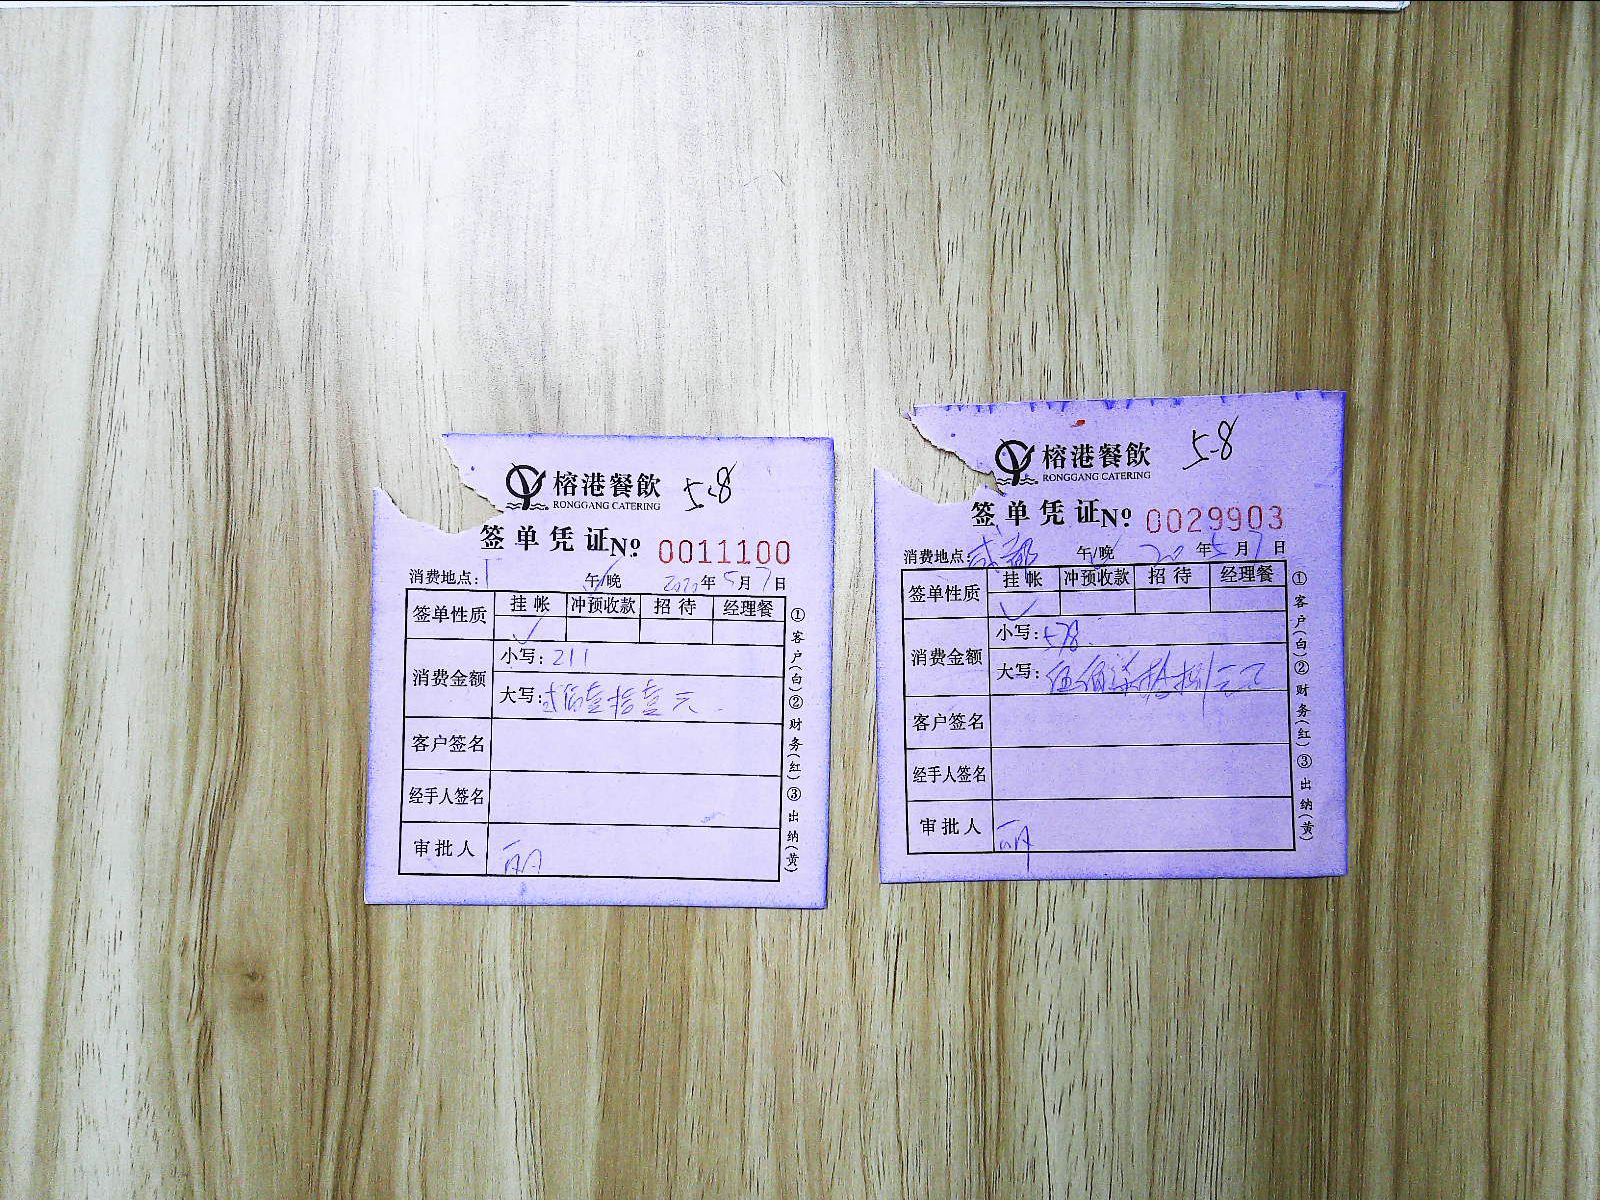 榕港餐飲
RONGGANG CATERING
5-8
签单凭证 No 0011100
消费地点: 午/晚 2020年5月7日
签单性质 挂帐 冲预收款 招待 经理餐
✓
消费金额
小写: 211
大写: 贰佰壹拾壹元
客户签名
经手人签名
审批人
①客户(白)②财务(红)③出纳(黄)
榕港餐飲
RONGGANG CATERING
5-8
签单凭证 No 0029903
消费地点: 成都 午/晚 20年5月7日
签单性质 挂帐 冲预收款 招待 经理餐
✓
消费金额
小写: 578
大写: 伍佰柒拾捌元正
客户签名
经手人签名
审批人
①客户(白)②财务(红)③出纳(黄)